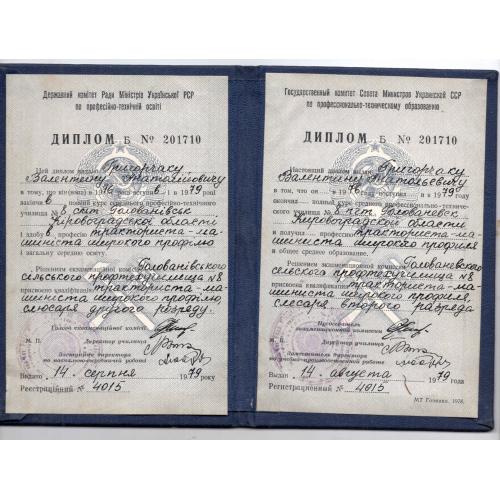 Державний комітет Ради Міністрів Української РСР
по професійно-технічній освіті
ДИПЛОМ Б № 201710
Цей диплом видано Григорчаку
Валентину Анатолійовичу
в тому, що він 1976 році вступив і в 1979
закінчив повний курс середнього
училища № 8 смт. Голованівськ
Кіровоградської області
і здобув професію тракториста-ма-
шиніста широкого профілю
і загальну середню освіту.
Рішенням екзаменаційної комісії Голованівського
сельского профтехучилища №8
присвоєно кваліфікацію тракториста-ма-
шиніста широкого профілю,
слюсаря другого розряду.
Голова екзаменаційної комісії
М. П. Директор училища
Заступник директора
по навчально-виробничій роботі
Видано 14 серпня 1979 року
Реєстраційний № 4015
Государственный комитет Совета Министров Украинской ССР
по профессионально-техническому образованию
ДИПЛОМ Б № 201710
Настоящий диплом выдан Григорчаку
Валентину Анатольевичу
в том, что он в 1976 году поступил и в 1979
окончил полный курс среднего
училища № 8 пгт. Голованевск
Кировоградской области
и получил профессию тракториста-ма-
шиниста широкого профиля
и общее среднее образование.
Решением экзаменационной комиссии Голованевского
сельского профтехучилища №8
присвоена квалификация тракториста-ма-
шиниста широкого профиля,
слесаря второго разряда
Председатель
экзаменационной комиссии
М. П. Директор училища
Заместитель директора
по учебно-производственной работе
Выдан 14 августа 1979 года
Регистрационный № 4015
МТ Гознака. 1978.